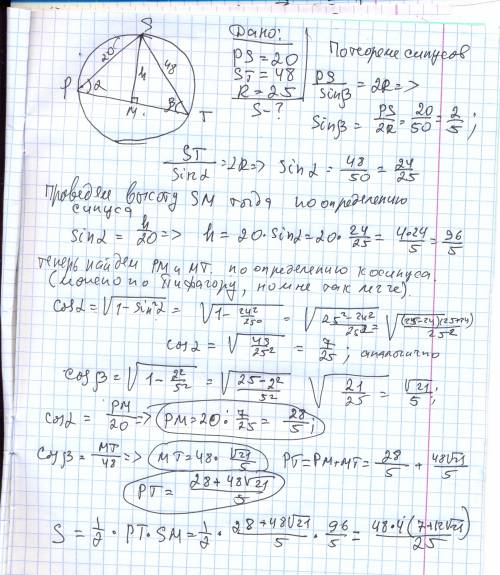 S
20
h
48
P
α
M
β
T
Дано:
PS = 20
ST = 48
R = 25
S - ?
По теореме синусов
PS/sinβ = 2R =>
sinβ = PS/2R = 20/50 = 2/5;
ST/sinα = 2R => sinα = 48/50 = 24/25
Проведем высоту SM тогда по определению
синуса
sinα = h/20 => h = 20·sinα = 20·24/25 = 4·24/5 = 96/5
теперь найдем PM и MT. по определению косинуса
(можно по Пифагору, но мне так легче).
cosα = √(1-sin²α) = √(1-24²/25²) = √((25²-24²)/25²) = √((25-24)(25+24)/25²)
cosα = √(49/25²) = 7/25; аналогично
cosβ = √(1-2²/5²) = √((25-2²)/5²) √(21/25) = √21/5;
cosα = PM/20 => PM = 20·7/25 = 28/5;
cosβ = MT/48 => MT = 48·√21/5 PT = PM+MT = 28/5 + 48√21/5
PT = (28+48√21)/5
S = 1/2·PT·SM = 1/2·(28+48√21)/5·96/5 = 48·4(7+12√21)/25